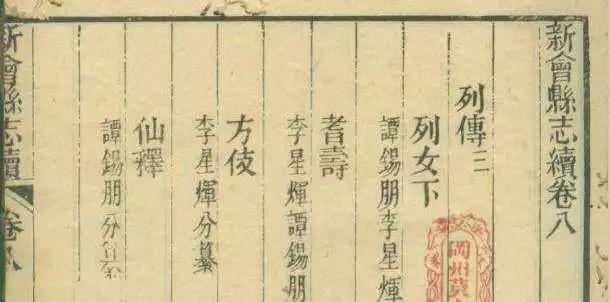 新會縣志續卷八
列傳三
列女下
譚錫朋李星煇
耆壽
李星煇譚錫朋
方伎
李星煇分纂
仙釋
譚錫朋分纂
新會縣志續
卷八
岡州